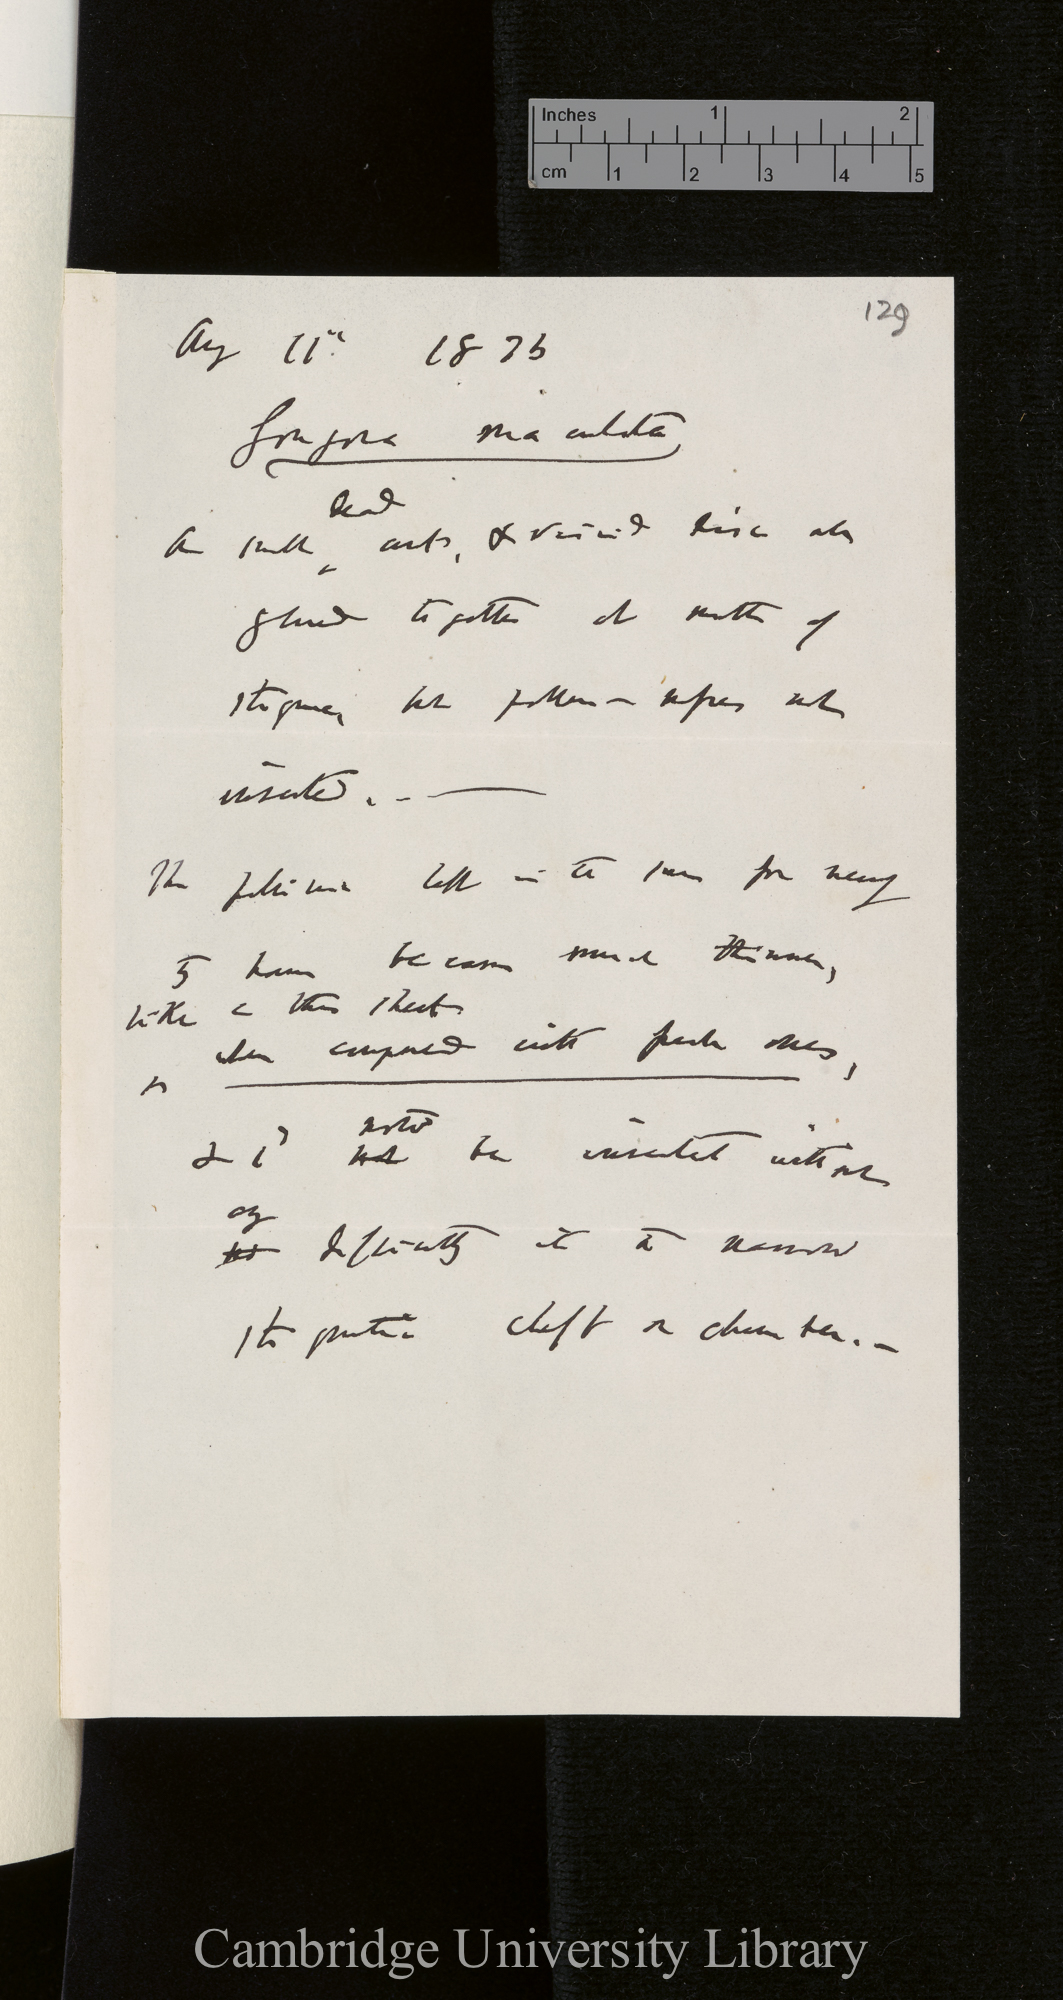 Inches 1 2
cm 1 2 3 4 5
129
Aug 11th 18
Gongora maculata
dead
An small ants, & viscid disc also
glued together at mouth of
stigma, but pollen-masses not
inserted. —
The pollinia left in the sun for nearly
5 hours became much thinner,
like a thin sheet
when compared with fresh ones,
& cd not be inserted without
any difficulty into the narrow
stigmatic cleft or chamber. —
Cambridge University Library